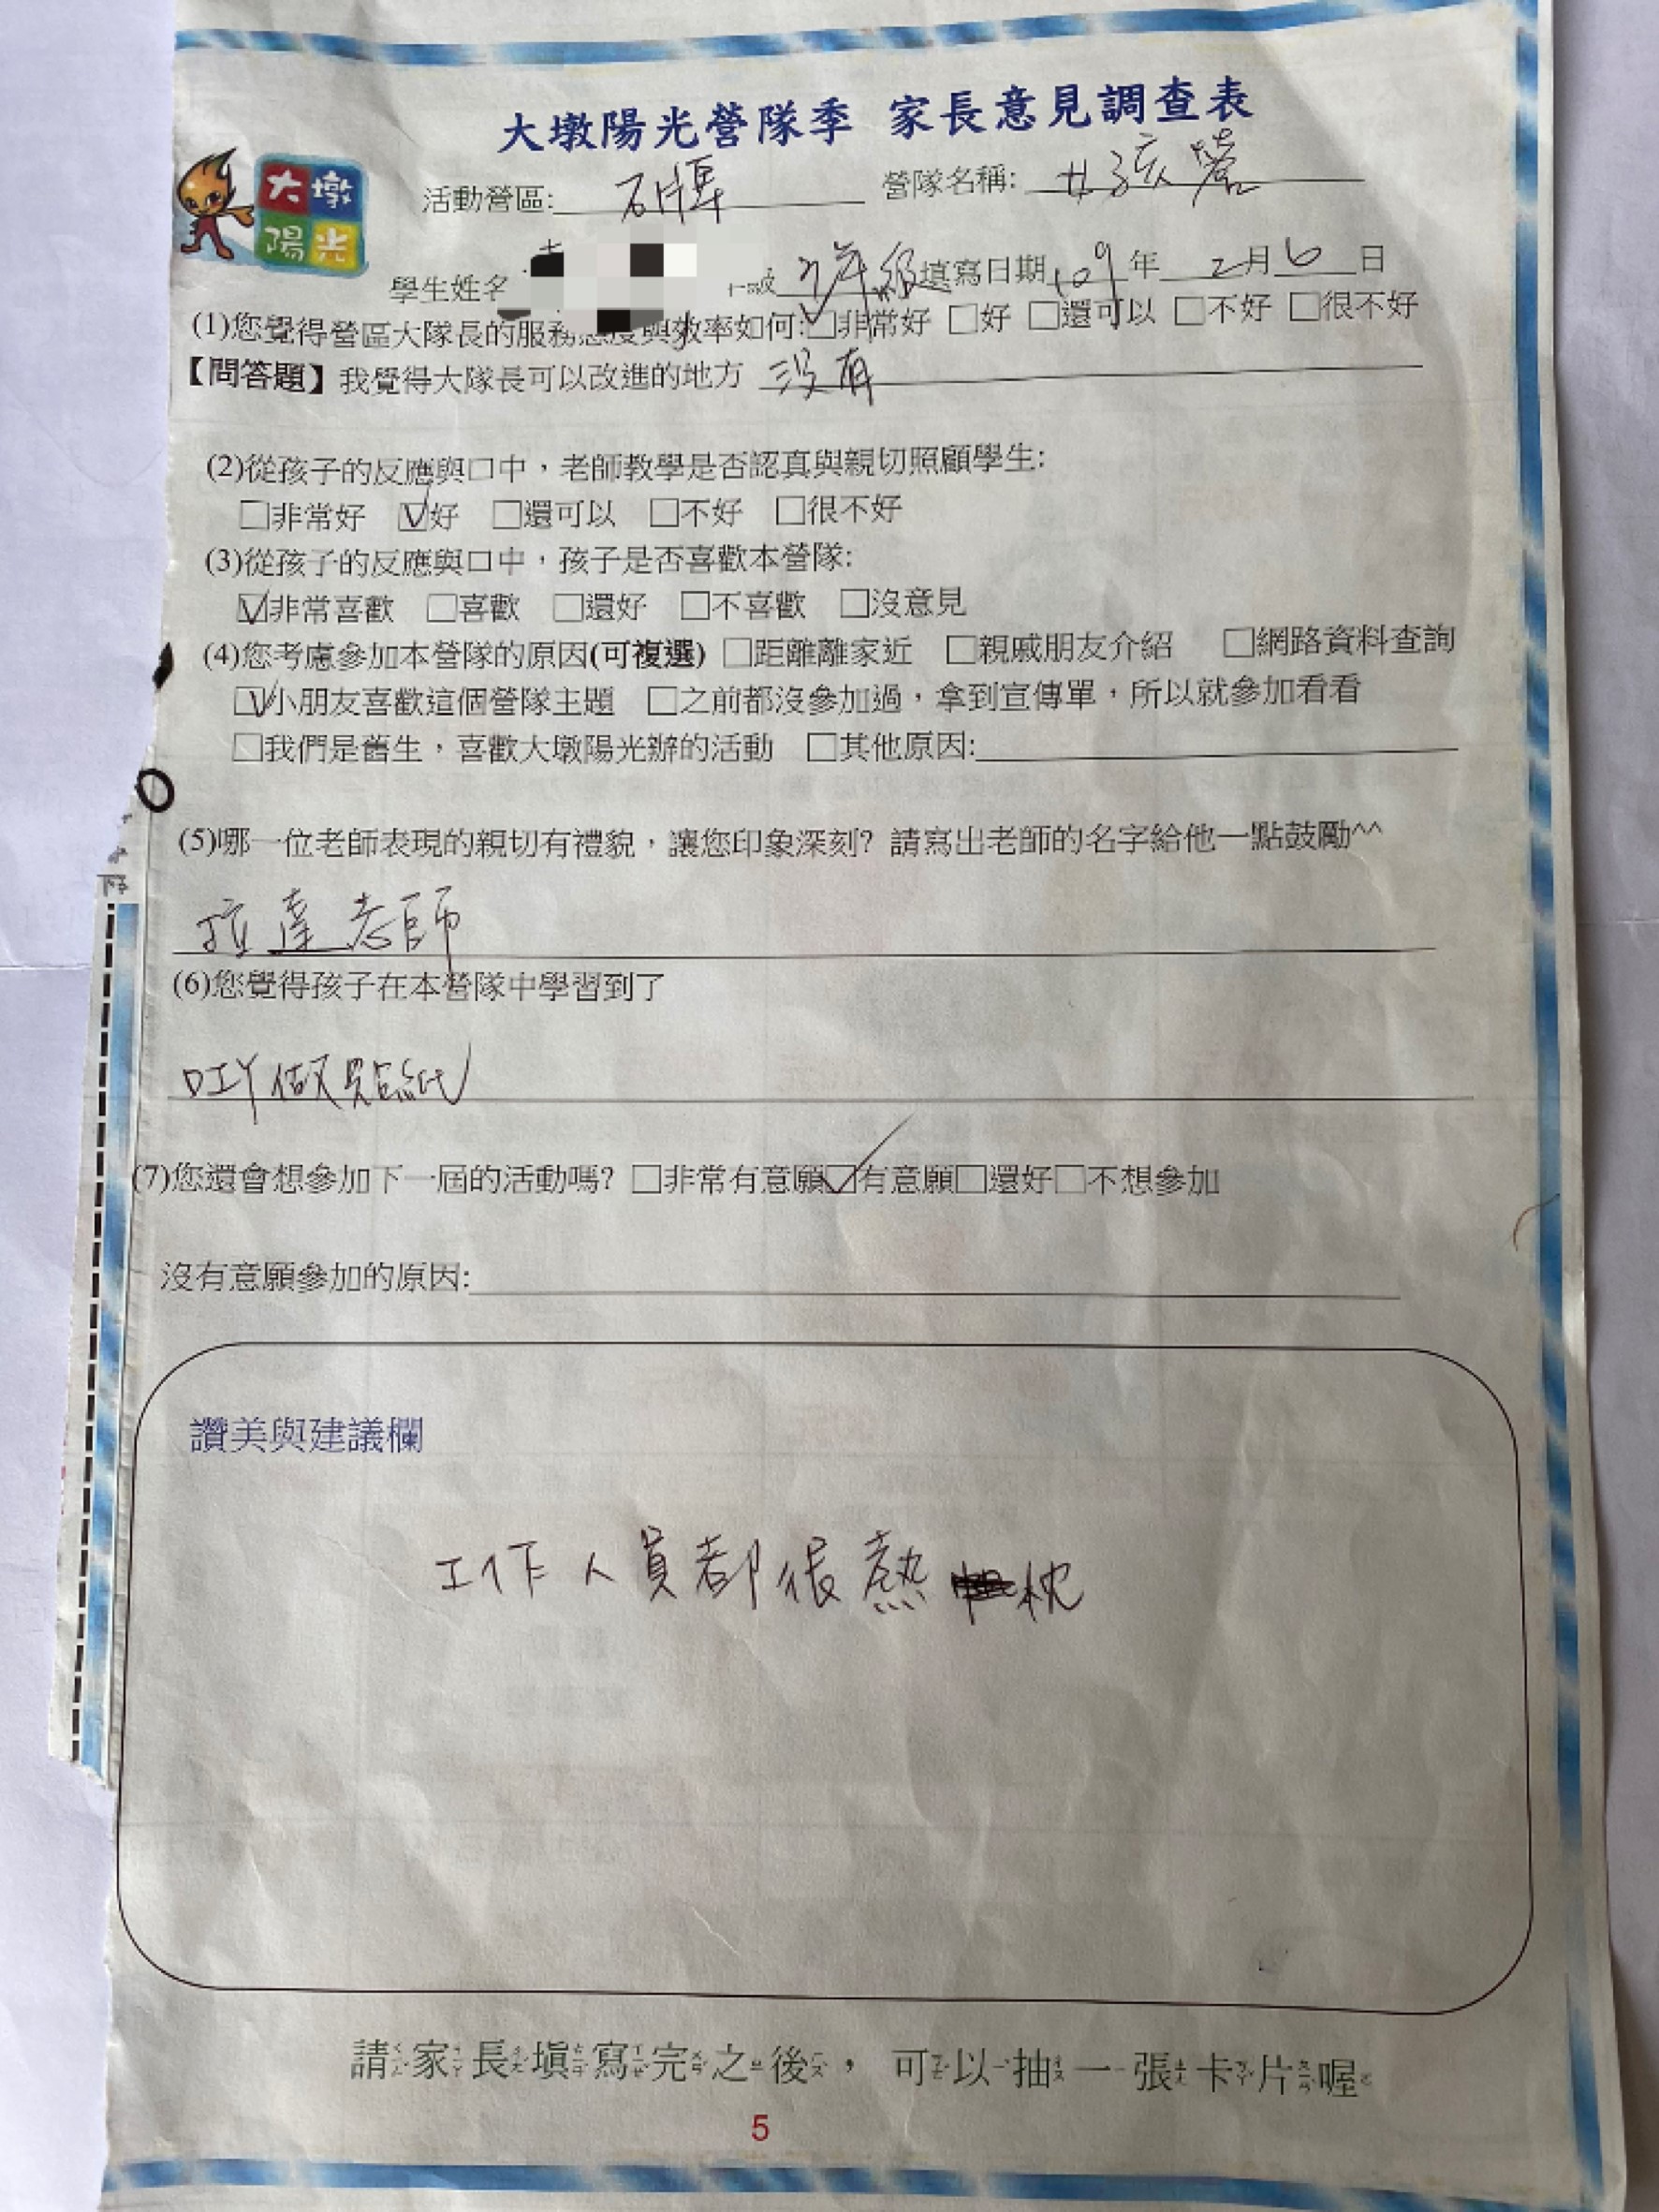 大墩陽光營隊季 家長意見調查表
大墩
陽光
活動營區: 石牌 營隊名稱: 女孩營
學生姓名 年級填寫日期109年2月6日
(1)您覺得營區大隊長的服務態度與效率如何:☑非常好 □好 □還可以 □不好 □很不好
【問答題】我覺得大隊長可以改進的地方 沒有
(2)從孩子的反應與口中，老師教學是否認真與親切照顧學生:
□非常好 ☑好 □還可以 □不好 □很不好
(3)從孩子的反應與口中，孩子是否喜歡本營隊:
☑非常喜歡 □喜歡 □還好 □不喜歡 □沒意見
(4)您考慮參加本營隊的原因(可複選) □距離離家近 □親戚朋友介紹 □網路資料查詢
☑小朋友喜歡這個營隊主題 □之前都沒參加過，拿到宣傳單，所以就參加看看
□我們是舊生，喜歡大墩陽光辦的活動 □其他原因:
(5)哪一位老師表現的親切有禮貌，讓您印象深刻? 請寫出老師的名字給他一點鼓勵^^
拉達老師
(6)您覺得孩子在本營隊中學習到了
DIY做貼紙
(7)您還會想參加下一屆的活動嗎? □非常有意願☑有意願□還好□不想參加
沒有意願參加的原因:
讚美與建議欄
工作人員都很熱枕
請家長填寫完之後，可以抽一張卡片喔
5